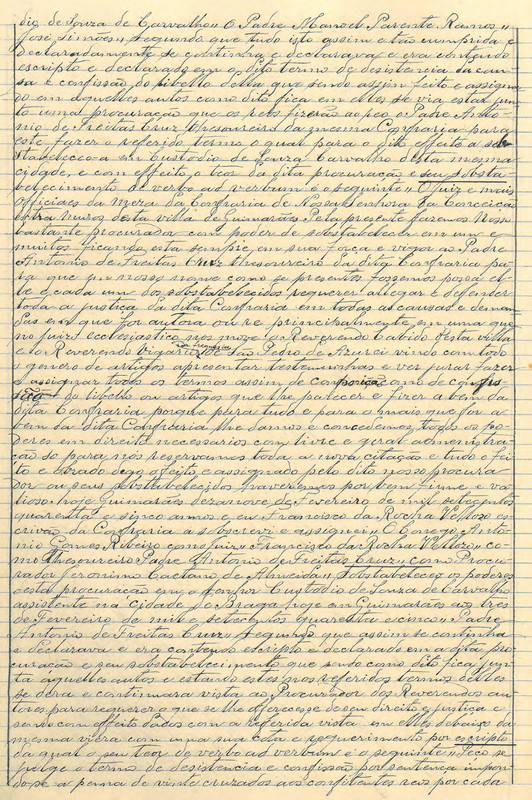 dio de Souza de Carvalho,, O Padre Manoel Parente Ramos,,
José Simões,, segundo que tudo isto assim e tão cumprida e
declaradamente se continha e declarava e era contendo
escripto e declarado em os dito termo de desistencia da cau
sa e confissão do libello della que sendo assim feito e assigna
do em aquelles autos como dito fica em elles se via estar jun
to uma procuração que os reos fizerão ao peo o Padre Anto
nio de Freitas Cruz thesoureiro da mesma Confraria para
este fazer o referido termo e qual para o dito effeito a sub
stabeleceo a em Custodio de Souza Carvalho desta mesma
cidade, e com effeito o teor da dita procuração e seu substa
belecimento de verbo ad verbum é o seguinte,, O Juiz e mais
officiaes da Meza da Confraria de Nossa Senhora da Conceição
extra muros desta villa de Guimarães. Pela presente fazemos Nosso
bastante procurador com poder de substabelecer em um e
muitos ficando esta sempre em sua força e vigor ao Padre
Antonio de Freitas Cruz thesoureiro da dita Confraria pa
ra que em nosso nome como se presentes fossemos possa el
le e cada um dos substabelecidos requerer allegar e defender
toda a justiça da dita Confraria em todas as causas e deman
das em que for autora ou re principalmente em uma que
no juizo ecclesiastico nos move o Reverendo Cabido desta villa
e o Reverendo Vigario de São Pedro de Azurei vindo com todo
o genero de artigos apresentar testemunhas e ver jurar fazer
e assignar todos os termos assim de composição como de confis
são do libello ou artigos que lhe parecer e fizer a bem da
dita Confraria porque para tudo e para o mais que for a
bem da dita Confraria lhe damos e concedemos todos os po
deres em direito necessarios com livre e geral administra
ção se para nós reservamos toda a nova citação e tudo o fei
to e obrado digo o feito e assignado pelo dito nosso procura
dor ou seus substabelecidos haveremos por bem firme e va
lioso. hoje Guimarães dezanove de Fevereiro de mil setecentos
quarenta e sinco annos e eu Francisco da Rocha Vellozo es
crivão da Confraria a sobscrevi e assignei,, O Conego Anto
nio Gomes Ribeiro como Juiz,, Francisco da Rocha Vellozo,, co
mo Thesoureiro Padre Antonio de Freitas Cruz,, como Procu
rador Jeronimo Caetano de Almeida,, Sobstabeleço os poderes
desta procuração em o Senhor Custodio de Souza de Carvalho
assistente na cidade de Braga hoje em Guimarães aos tres
de Fevereiro de mil e setecentos quarenta e sinco,, Padre
Antonio de Freitas Cruz,, segundo que assim se continha
e declarava e era contendo escripto e declarado em a dita pro
curação e seu sobstabelecimento que sendo como dito fica jun
ta aquelles autos e estando estes nos referidos termos delles
se dera e continuara vista ao Procurador dos Reverendos au
tores para requerer o que se lhe offerecesse de seu direito e justiça e
sendo com effeito dados com a referida vista em elles debaixo da
mesma viera com uma sua cota e requerimento por escripto
da qual o seu teor de verbo ad verbum é o seguinte,, Peço se
julgue o termo de desistencia e confissão por sentença impon
do-se a penna de vinte cruzados aos confitentes reos por cada